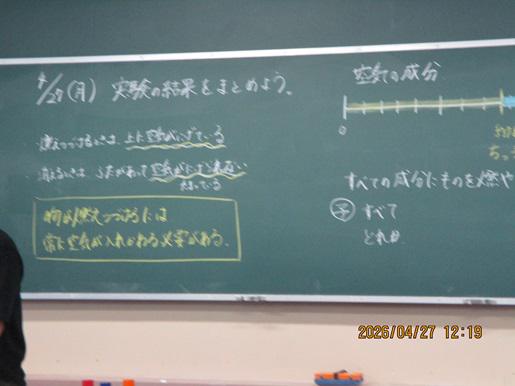 4/27(月) 実験の結果をまとめよう。
・燃えつづけるときは、上に空気がにげている
・消えるときは、ふたがあって空気がにげ
たまっている
物が燃えつづけるには
常に空気が入れかわる必要がある。
空気の成分
0
ちっ
すべての成分にものを燃や
予 すべて
どれか
2026/04/27 12:19